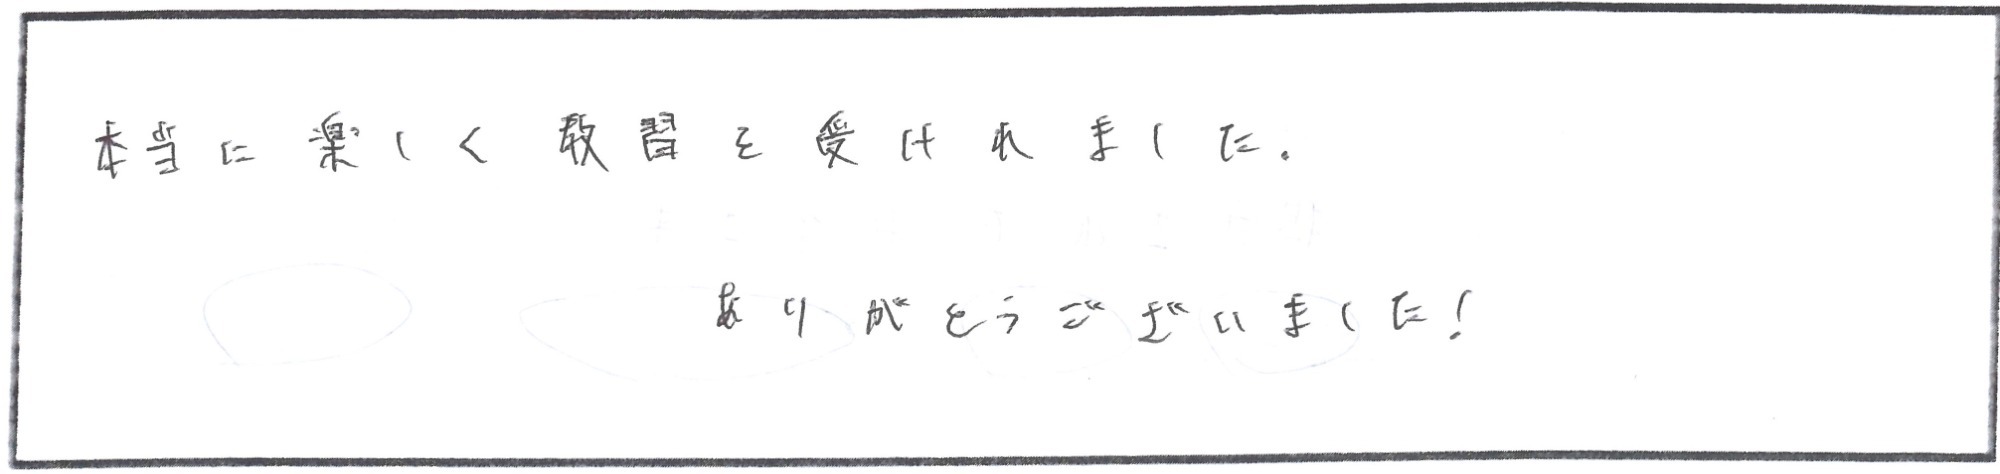 本当に楽しく教習を受けれました.
ありがとうございました!